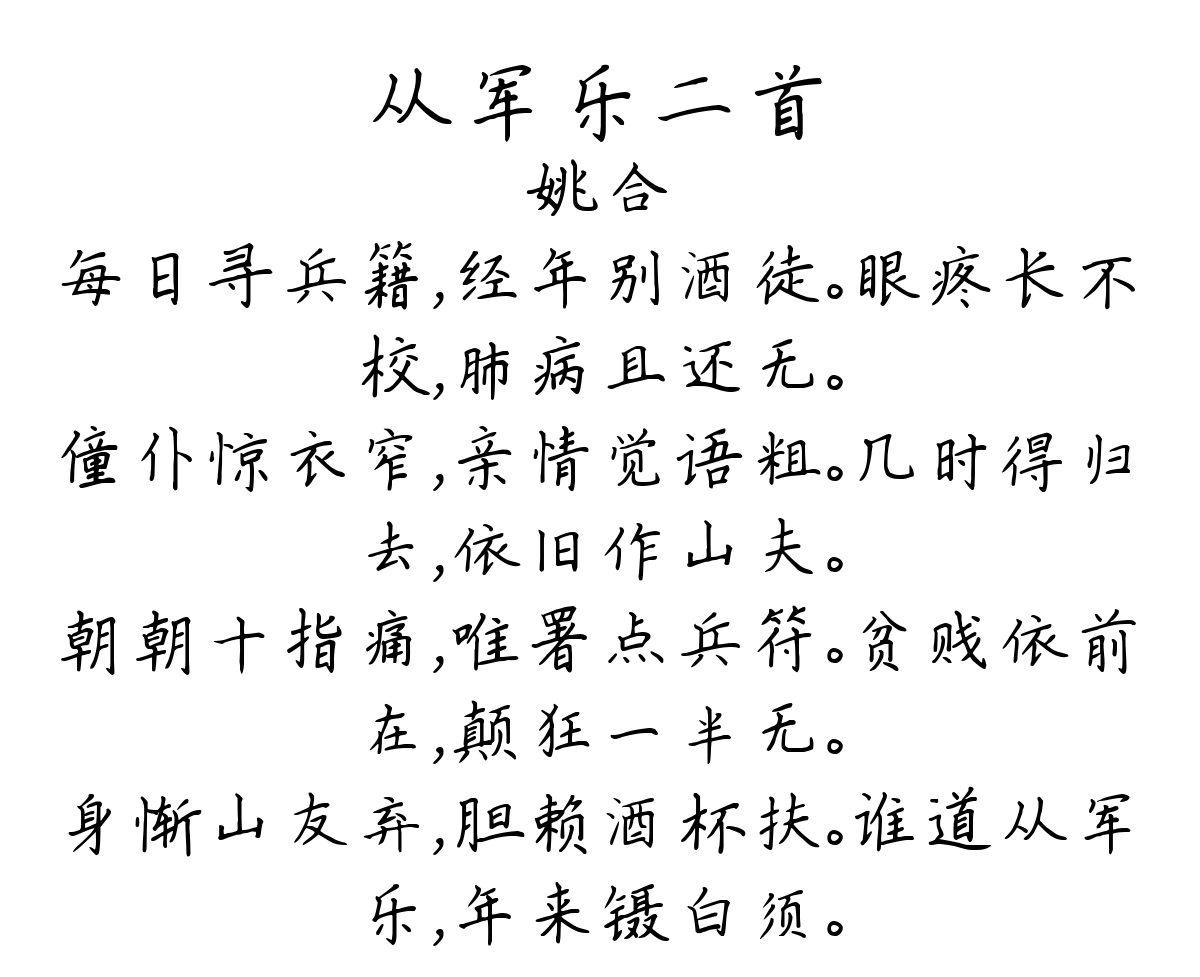 从军乐二首
姚合
每日寻兵籍,经年别酒徒。眼疼长不
校,肺病且还无。
僮仆惊衣窄,亲情觉语粗。几时得归
去,依旧作山夫。
朝朝十指痛,唯署点兵符。贫贱依前
在,颠狂一半无。
身惭山友弃,胆赖酒杯扶。谁道从军
乐,年来镊白须。